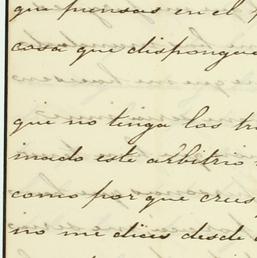 que piensas en el
cosa que dispongue
que no tenga las tr
mado este arbitrio
como por que crees
no me dices desde